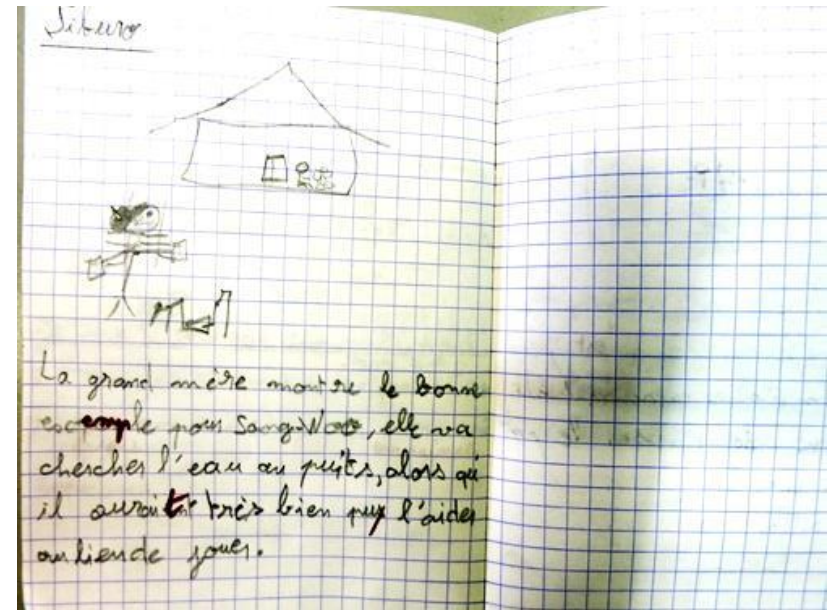 Jiburo
La grand mère montre le bonne
exemple pour Sang-Woo, elle va
chercher l'eau au puits, alors qu'
il aurait très bien pu l'aider
au liende jouer.